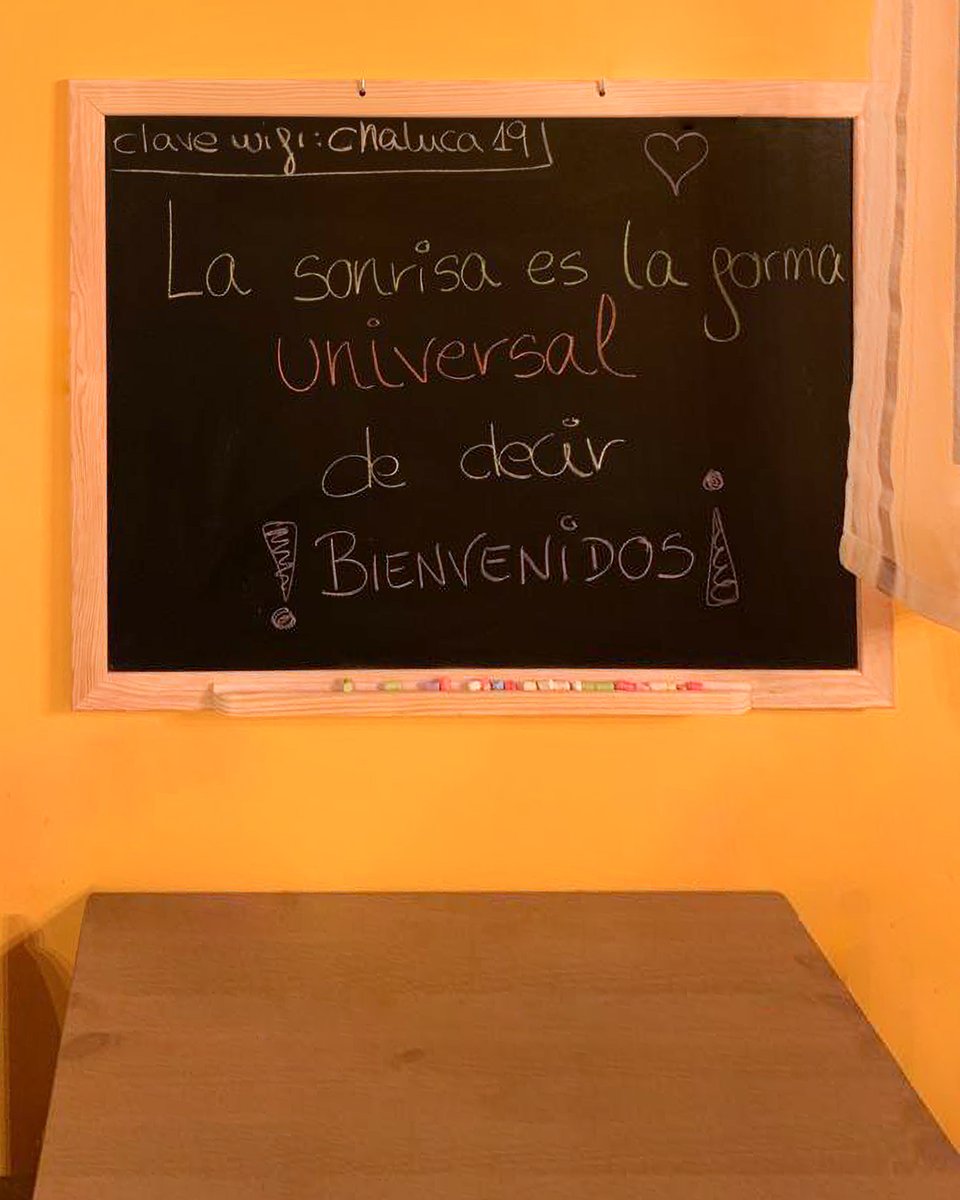 clave wifi: Chaluca19
La sonrisa es la forma
universal
de decir
!BIENVENIDOS¡